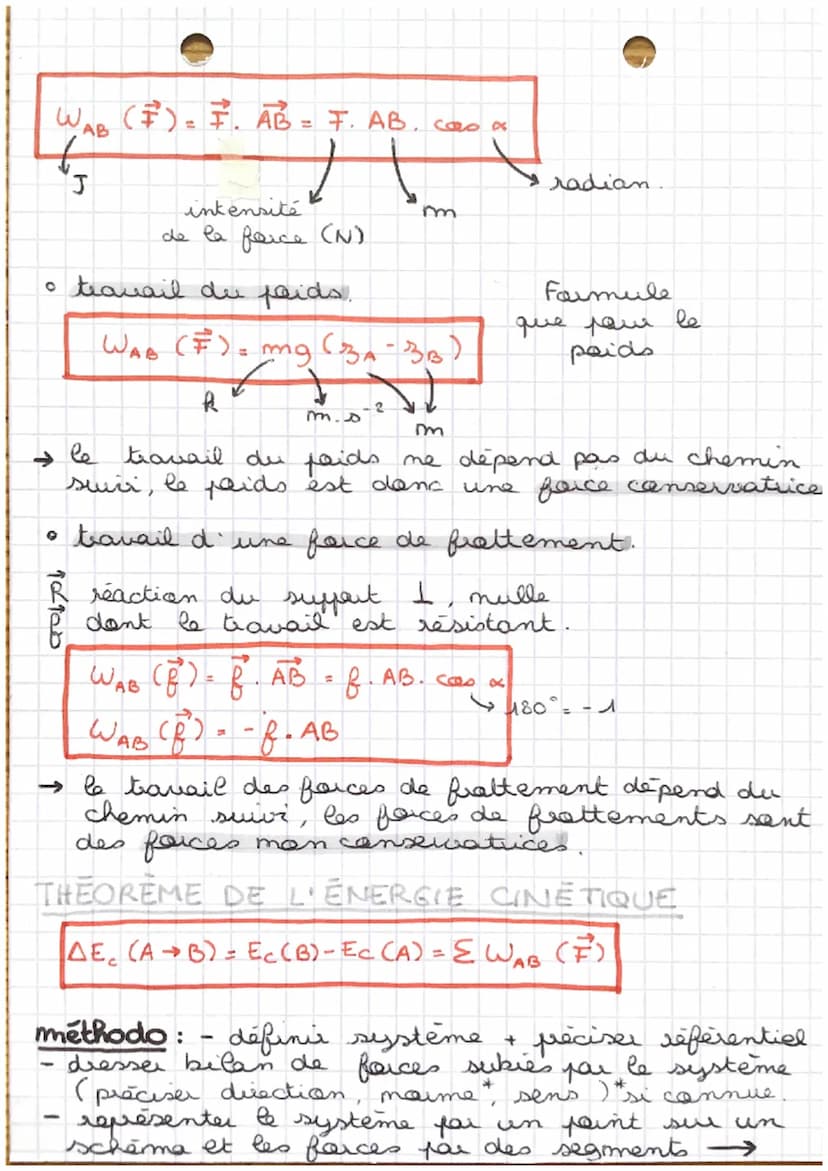 W_AB (F⃗) = F⃗ . AB⃗ = F. AB. cos α
J
radian.
intensité
de la force (N)
m
• travail du poids.
Formule
que pour le
poids
W_AB (F⃗) = mg (z_A - z_B)
m.s⁻²
m
→ le travail du poids ne dépend pas du chemin
suivi, le poids est donc une force conservatrice
• travail d'une force de frottement.
R⃗ réaction du support ⊥, nulle
f⃗ dont le travail est résistant.
W_AB (f⃗) = f⃗ . AB⃗ = f. AB. cos α
180° = -1
W_AB (f⃗) = - f. AB
→ le travail des forces de frottement dépend du
chemin suivi, les forces de frottements sont
des forces non conservatrices.
THÉORÈME DE L'ÉNERGIE CINÉTIQUE
ΔE_c (A → B) = E_c (B) - E_c (A) = Σ W_AB (F⃗)
méthodo : - définir système + préciser référentiel
- dresser bilan de forces subies par le système
(préciser direction, norme*, sens) *si connue.
- représenter le système par un point sur un
schéma et les forces par des segments →